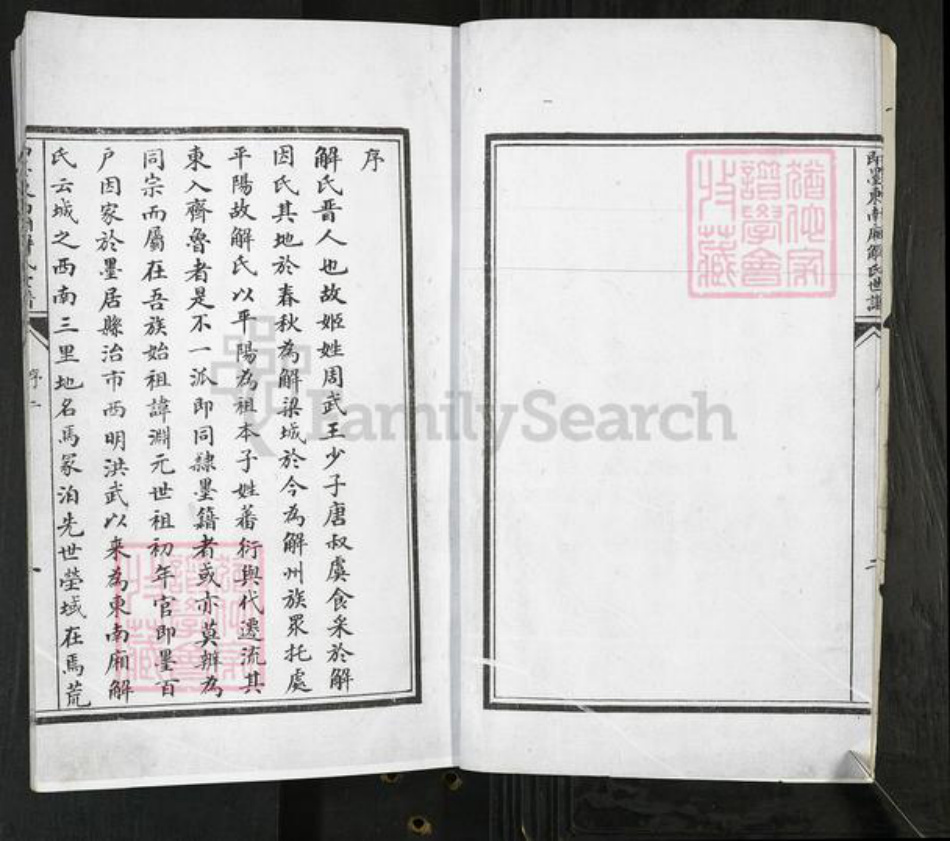 即墨東南廂解氏世譜
二
猶他家譜學會收藏
序
解氏晋人也故姬姓周武王少子唐叔虞食采於解
因氏其地於春秋為解梁城於今為解州族眾托處
平陽故解氏以平陽為祖本子姓蕃衍與代遷流其
東入齊魯者是不一派即同隸墨籍者或亦莫辨為
同宗而屬在吾族始祖諱淵元世祖初年官即墨百
户因家於墨居縣治市西明洪武以来為東南廂解
氏云城之西南三里地名馬冢泊先世塋域在焉荒
序二
猶他家譜學會收藏
FamilySearch